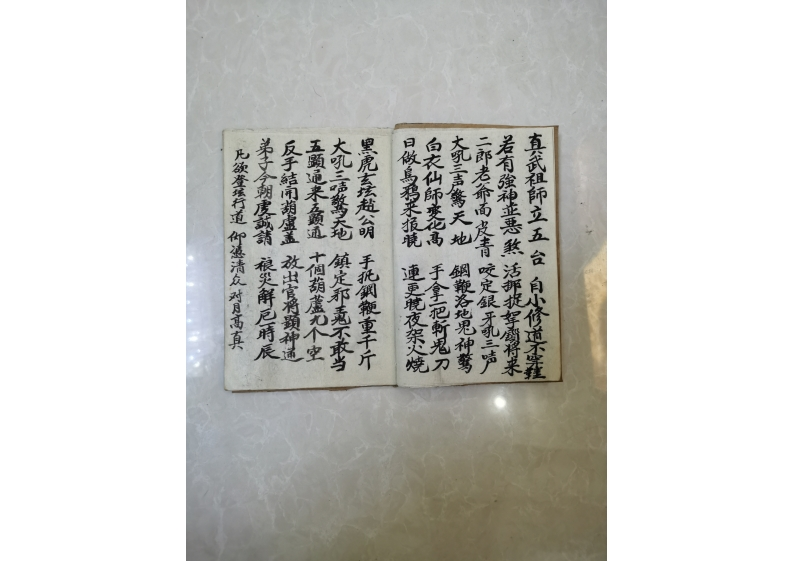 真武祖師立五台 自小修道不穿鞋
若有強神並惡煞 活那捉孥發將来
二郎老爺面皮青 咬定銀牙吼三声
大吼三声驚天地 鋼鞭洛地鬼神驚
白衣仙師变化高 手拿一把斬鬼刀
日做烏鴉来报曉 連更晚夜架火燒
黑虎玄坛趙公明 手扺鋼鞭重千斤
大吼三声驚天地 鎮定邪鬼不敢当
五顕通来五顕通 十個葫蘆九个空
反手結開葫盧盖 放出官将顕神通
弟子今朝虔誠請 禳災解厄一時辰
凡欲登坛行道 仰慿清众 对月高真